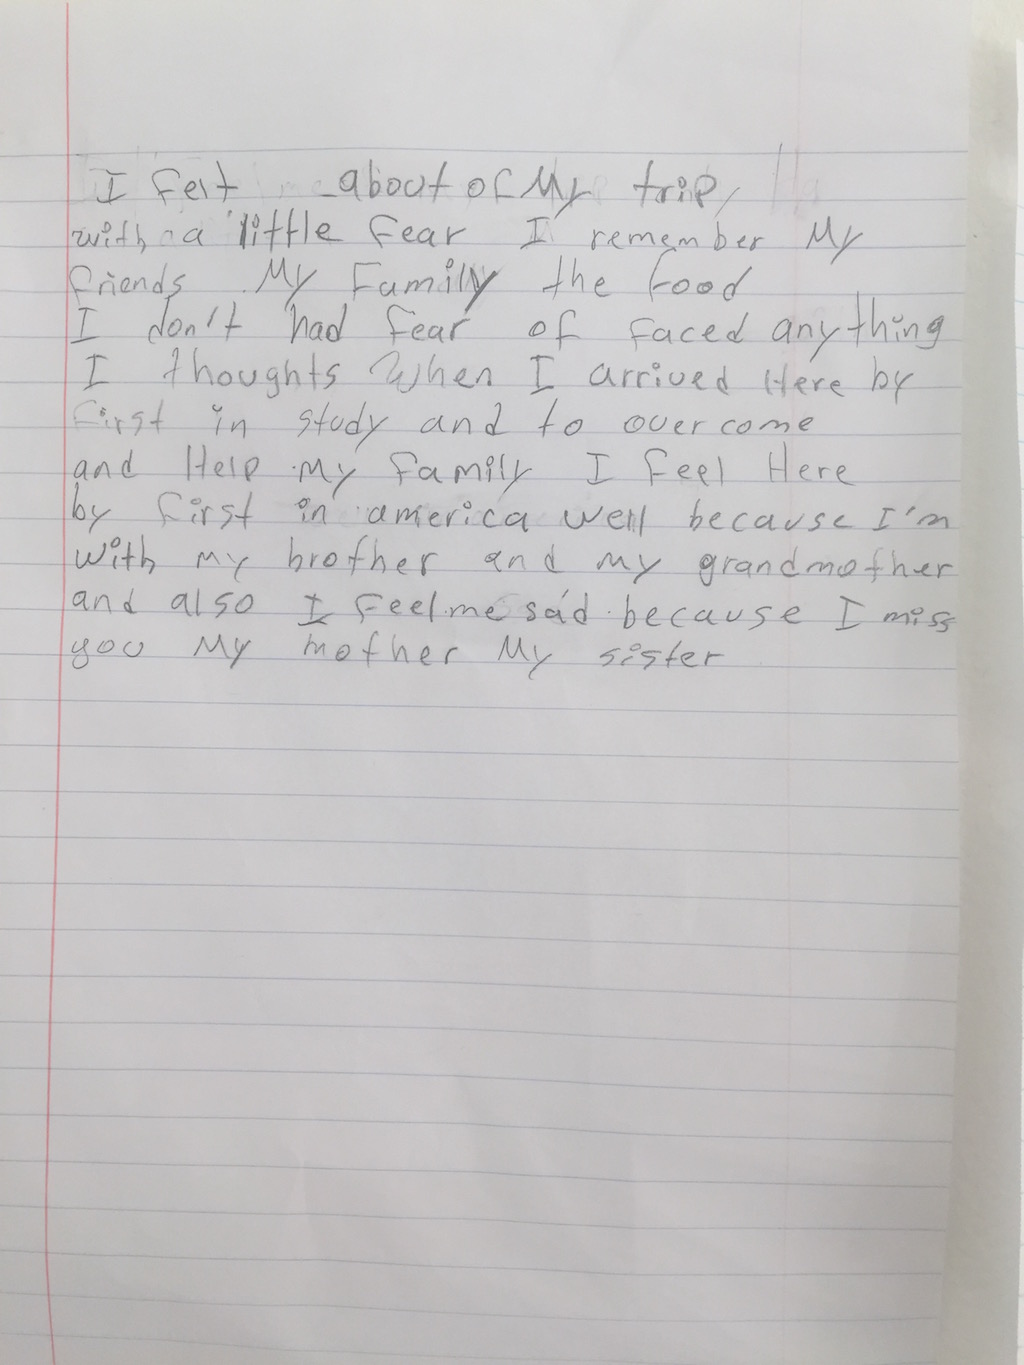 I felt about of My trip,
with a little fear I remember My
friends My Family the food
I don't had fear of faced anything
I thoughts When I arrived Here by
First in study and to overcome
and Help My family I feel Here
by first in america well because I'm
with my brother and my grandmother
and also I feel me sád because I miss
you My mother My sister